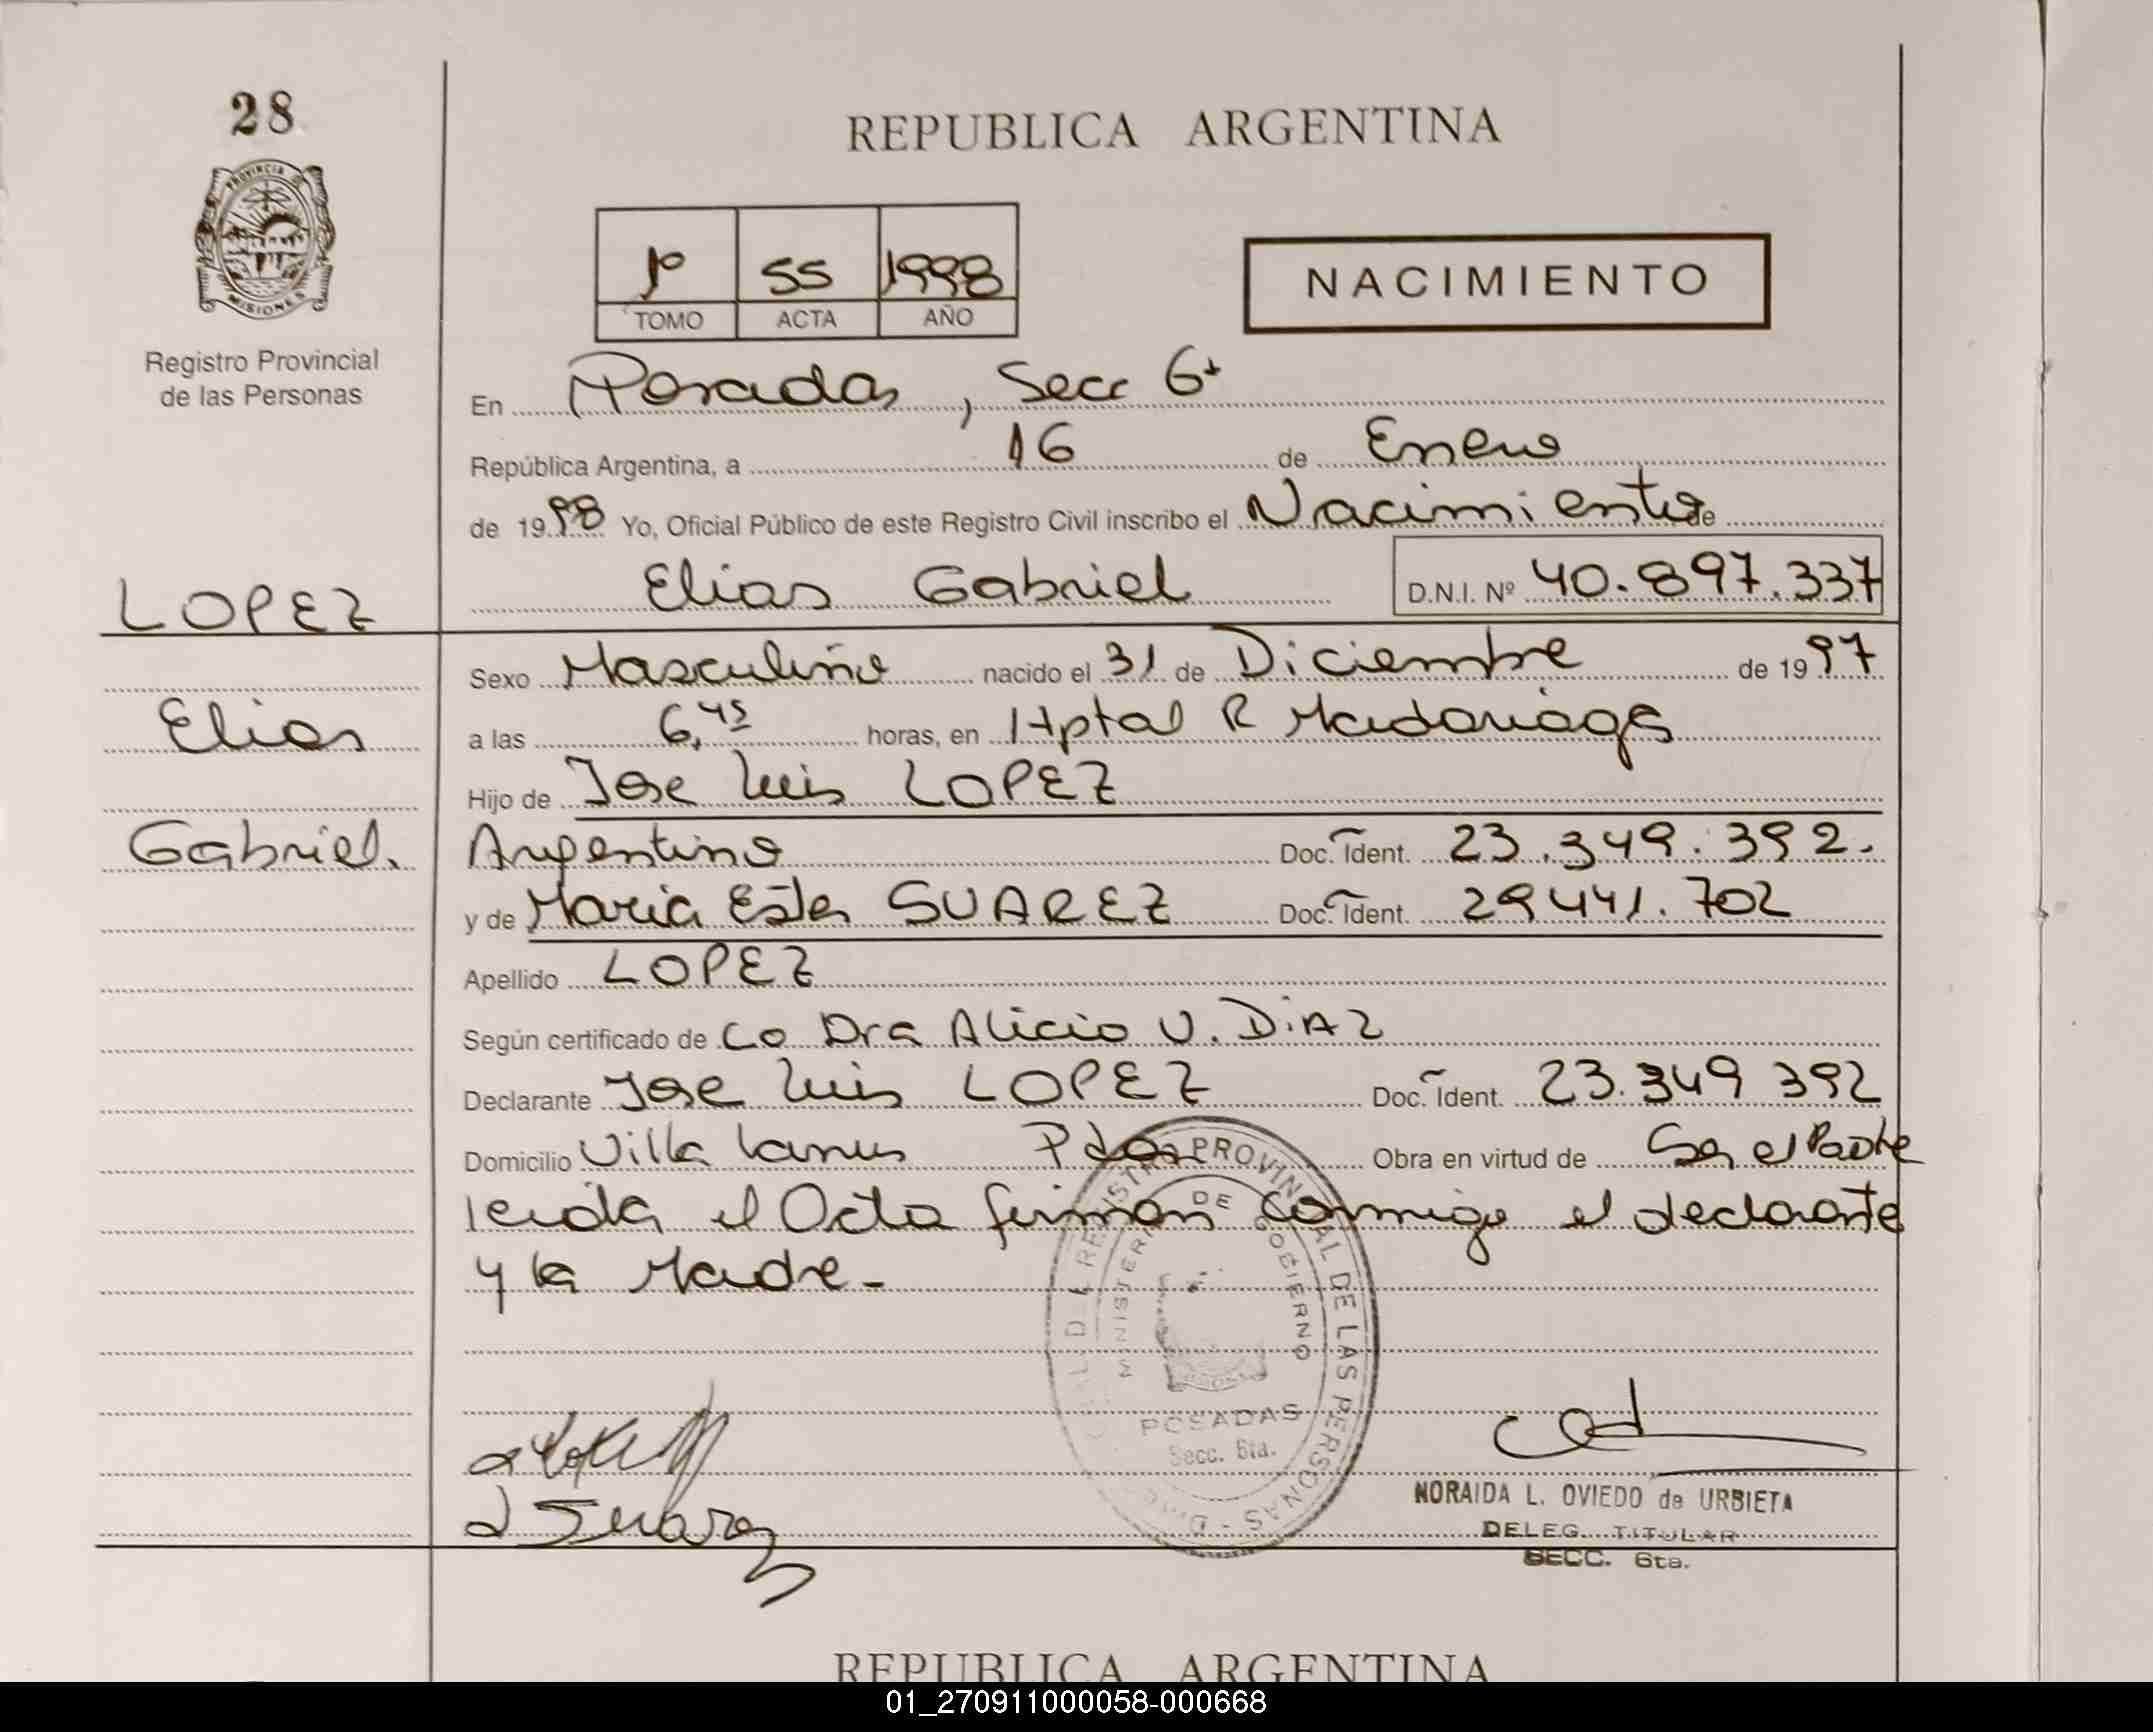 28
REPUBLICA ARGENTINA
PROVINCIA DE
MISIONES
Registro Provincial
de las Personas
1º 55 1998
TOMO ACTA AÑO
NACIMIENTO
En Posadas, Secc 6ª
República Argentina, a 16 de Enero
de 1998 Yo, Oficial Público de este Registro Civil inscribo el Nacimiento de
LOPEZ Elias Gabriel D.N.I. Nº 40.897.337
Sexo Masculino nacido el 31 de Diciembre de 1997
Elias a las 6,45 horas, en Hptal R Madariaga
Hijo de Jose Luis LOPEZ
Gabriel. Argentino Doc. Ident. 23.349.392.
y de Maria Ester SUAREZ Doc. Ident. 29441.702
Apellido LOPEZ
Según certificado de La Dra Alicia V. DiAZ
Declarante Jose Luis LOPEZ Doc. Ident. 23.349 392
Domicilio Villa Lanus Pdas Obra en virtud de Ser el Padre
leida el Acta firman conmigo el declarante
y la Madre-
REGISTRO PROVINCIAL DE LAS PERSONAS
MINISTERIO DE GOBIERNO
POSADAS
Secc. 6ta.
Suarez
NORAIDA L. OVIEDO de URBIETA
DELEG. TITULAR
SECC. 6ta.
REPUBLICA ARGENTINA
01_270911000058-000668